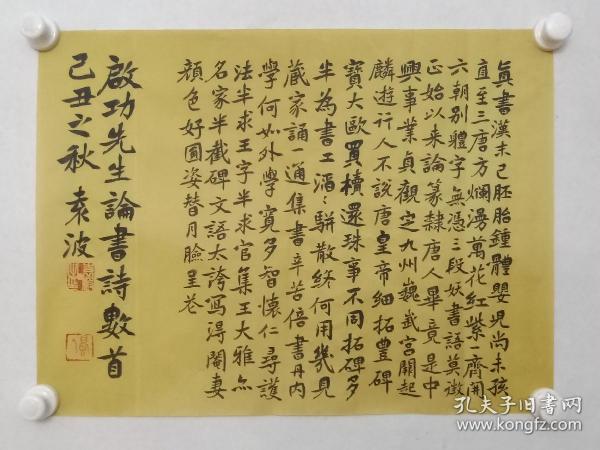 真書漢末已胚胎鍾體嬰兒尚未孩
直至三唐方爛漫萬花紅紫一齊開
六朝別體字無憑三段妖書語莫徵
正始以來論篆隸唐人畢竟是中
興事業貞觀定九州巍武宮開起
麟遊行人不說唐皇帝細拓豐碑
寶大歐買櫝還珠事不同拓碑多
半為書工滔滔駢散終何用幾見
藏家誦一通集書辛苦倍書丹內
學何如外學寬多智懷仁尋護
法半求王字半求官集王大雅亦
名家半截碑文語太誇寫得閹妻
顏色好圓姿替月臉呈花
啟功先生論書詩數首
己丑之秋 袁波
孔夫子旧书网
www.kongfz.com